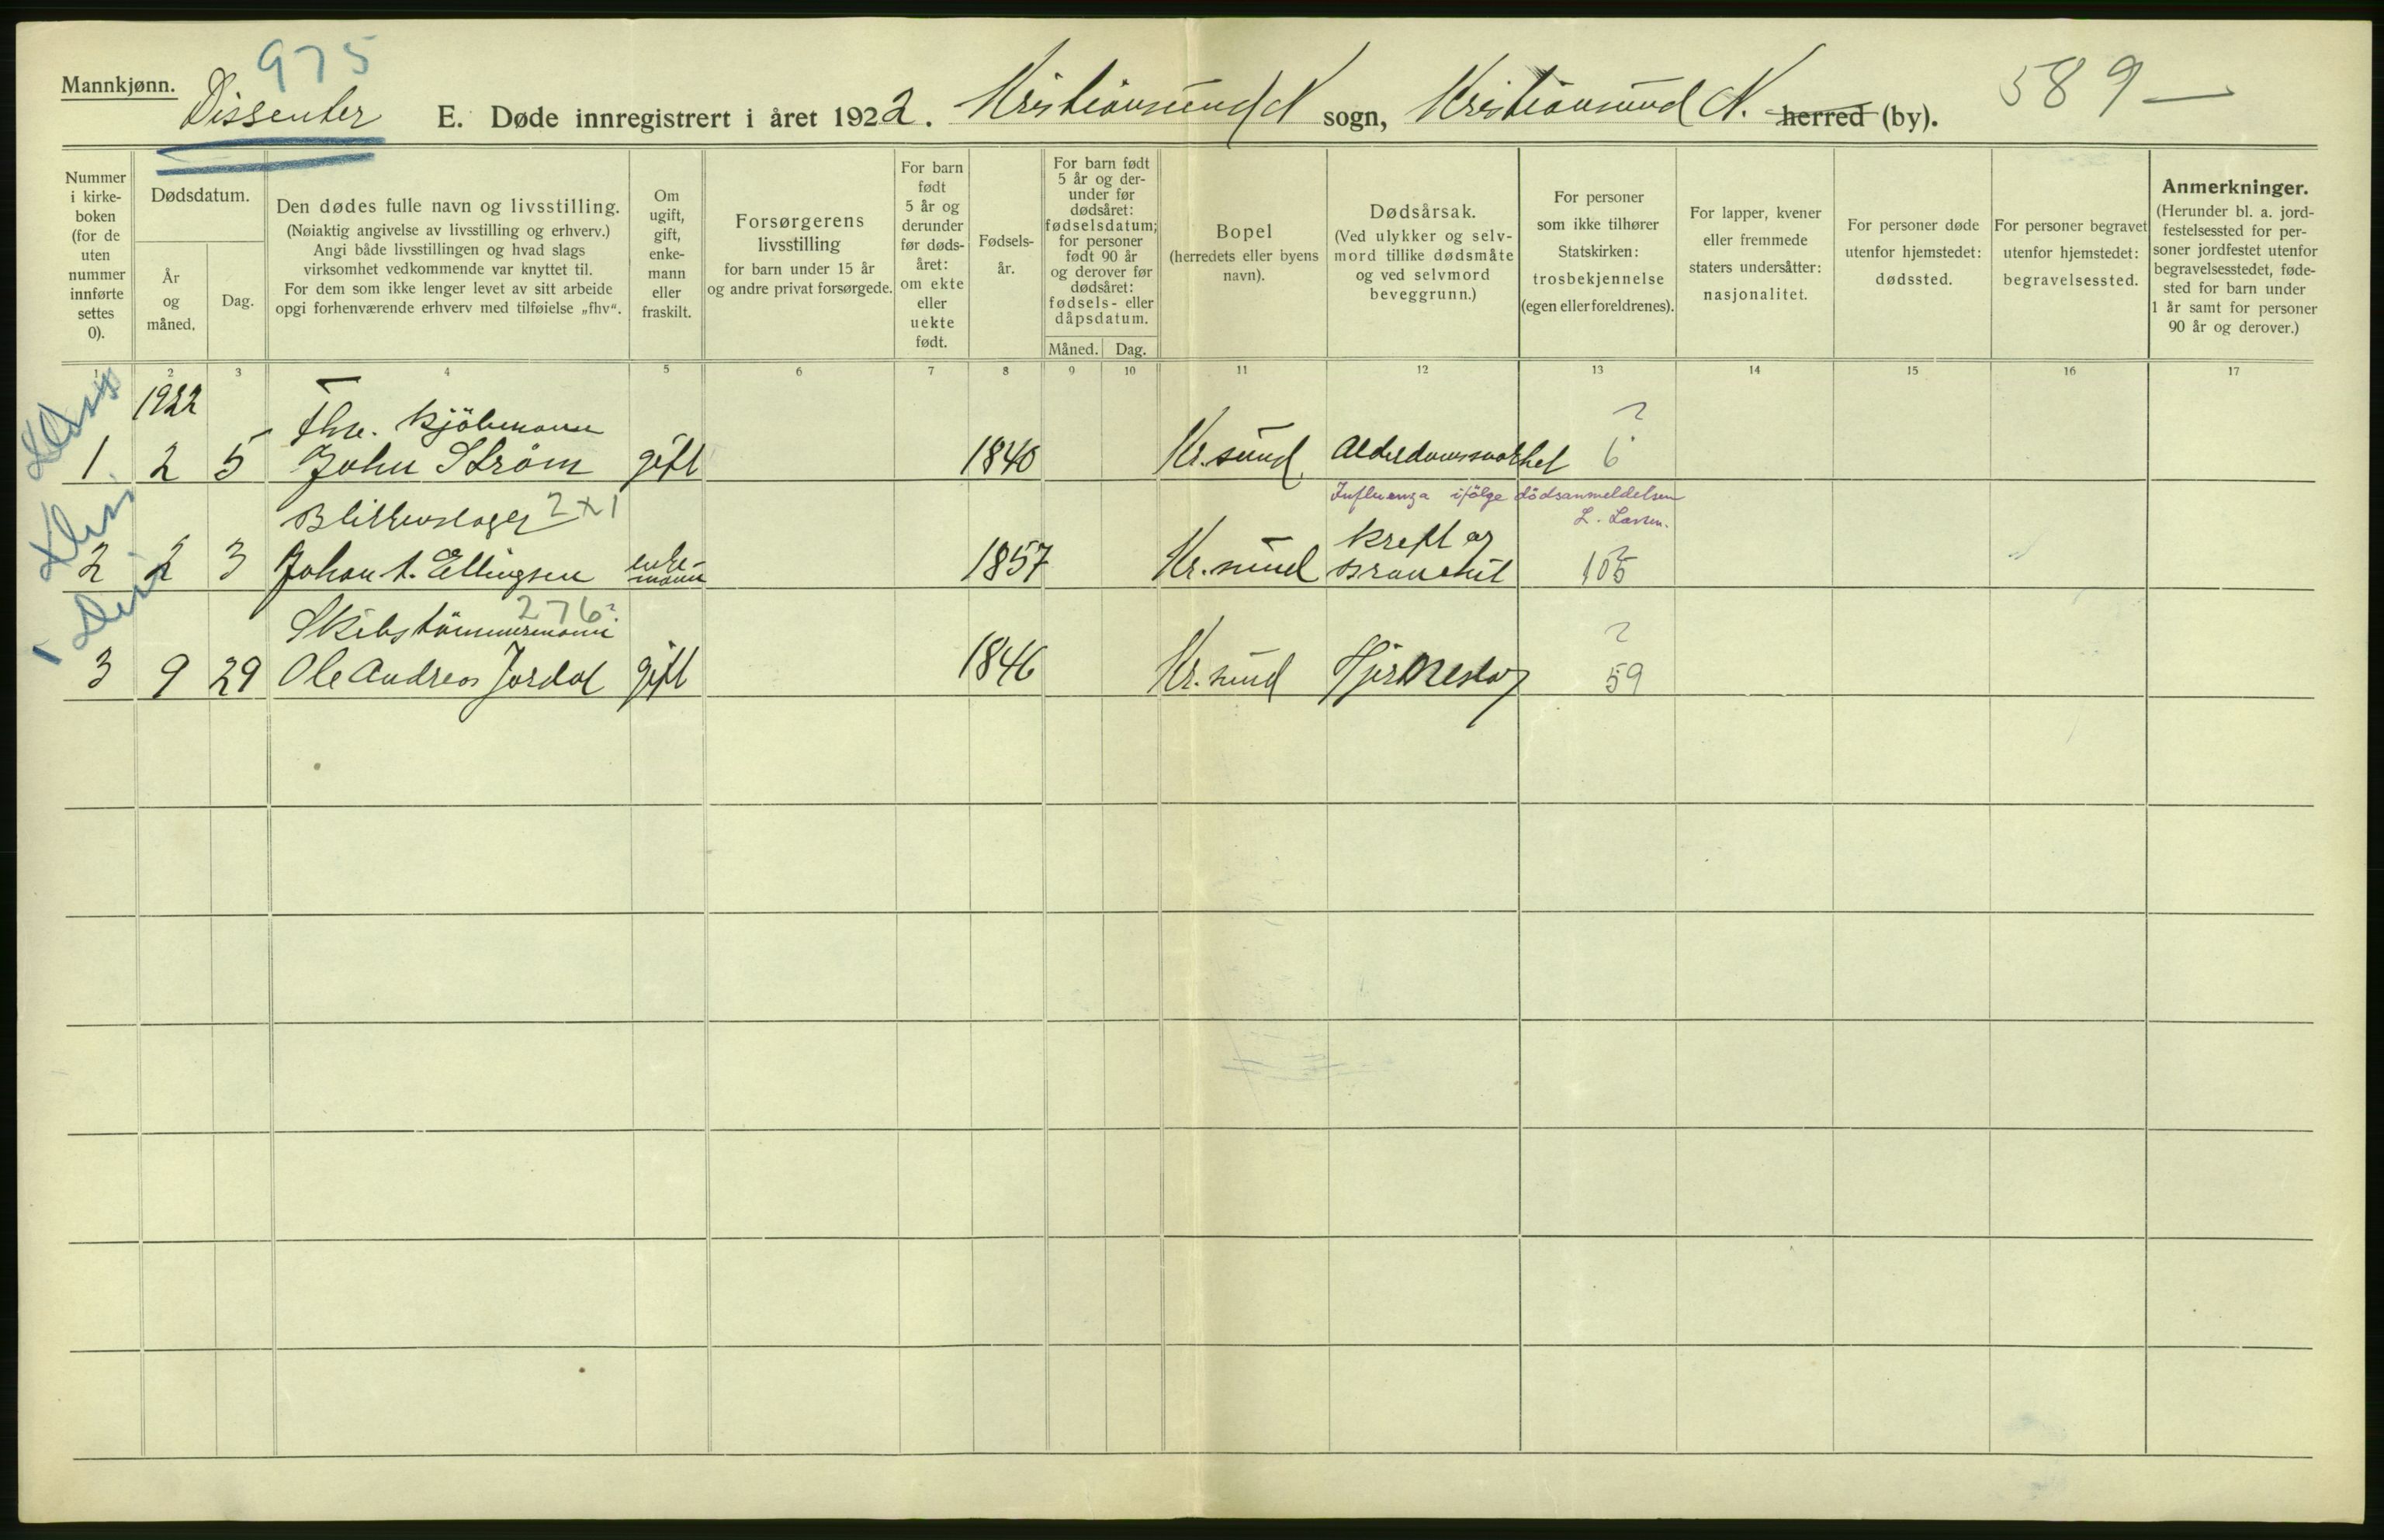 975
Mannkjønn.
Dissenter
E. Døde innregistrert i året 1922. Kristiansund N sogn, Kristiansund N. herred (by).
589
Nummer i kirke-boken (for de uten nummer innførte settes 0).
Dødsdatum.
År og måned.
Dag.
Den dødes fulle navn og livsstilling.
(Nøiaktig angivelse av livsstilling og erhverv.)
Angi både livsstillingen og hvad slags
virksomhet vedkommende var knyttet til.
For dem som ikke lenger levet av sitt arbeide
opgi forhenværende erhverv med tilføielse „fhv“.
Om ugift, gift, enke-mann eller fraskilt.
Forsørgerens
livsstilling
for barn under 15 år
og andre privat forsørgede.
For barn født 5 år og derunder før døds-året: om ekte eller uekte født.
Fødsels-år.
For barn født 5 år og der-under før dødsåret: fødselsdatum; for personer født 90 år og derover før dødsåret: fødsels- eller dåpsdatum.
Måned.
Dag.
Bopel
(herredets eller byens
navn).
Dødsårsak.
(Ved ulykker og selv-
mord tillike dødsmåte
og ved selvmord
beveggrunn.)
For personer
som ikke tilhører
Statskirken:
trosbekjennelse
(egen eller foreldrenes).
For lapper, kvener
eller fremmede
staters undersåtter:
nasjonalitet.
For personer døde
utenfor hjemstedet:
dødssted.
For personer begravet
utenfor hjemstedet:
begravelsessted.
Anmerkninger.
(Herunder bl. a. jord-
festelsessted for per-
soner jordfestet utenfor
begravelsesstedet, føde-
sted for barn under
1 år samt for personer
90 år og derover.)
1 2 3 4 5 6 7 8 9 10 11 12 13 14 15 16 17
1922
Kjöbmann ?
1 2 5 John Strøm gift 1840 Kr.sund Alderdomssvakhet 6
Influenza ifölge dödsanmeldelsen
L. Larsen.
Blikkenslager 2×1
Kreft og
2 2 3 Johan A. Ellingsen enke-mann 1857 Kr.sund Bronchit 105
Skibstömmermann 276 ?
3 9 29 Ole Andreas Jordal gift 1846 Kr.sund Hjerneslag 59